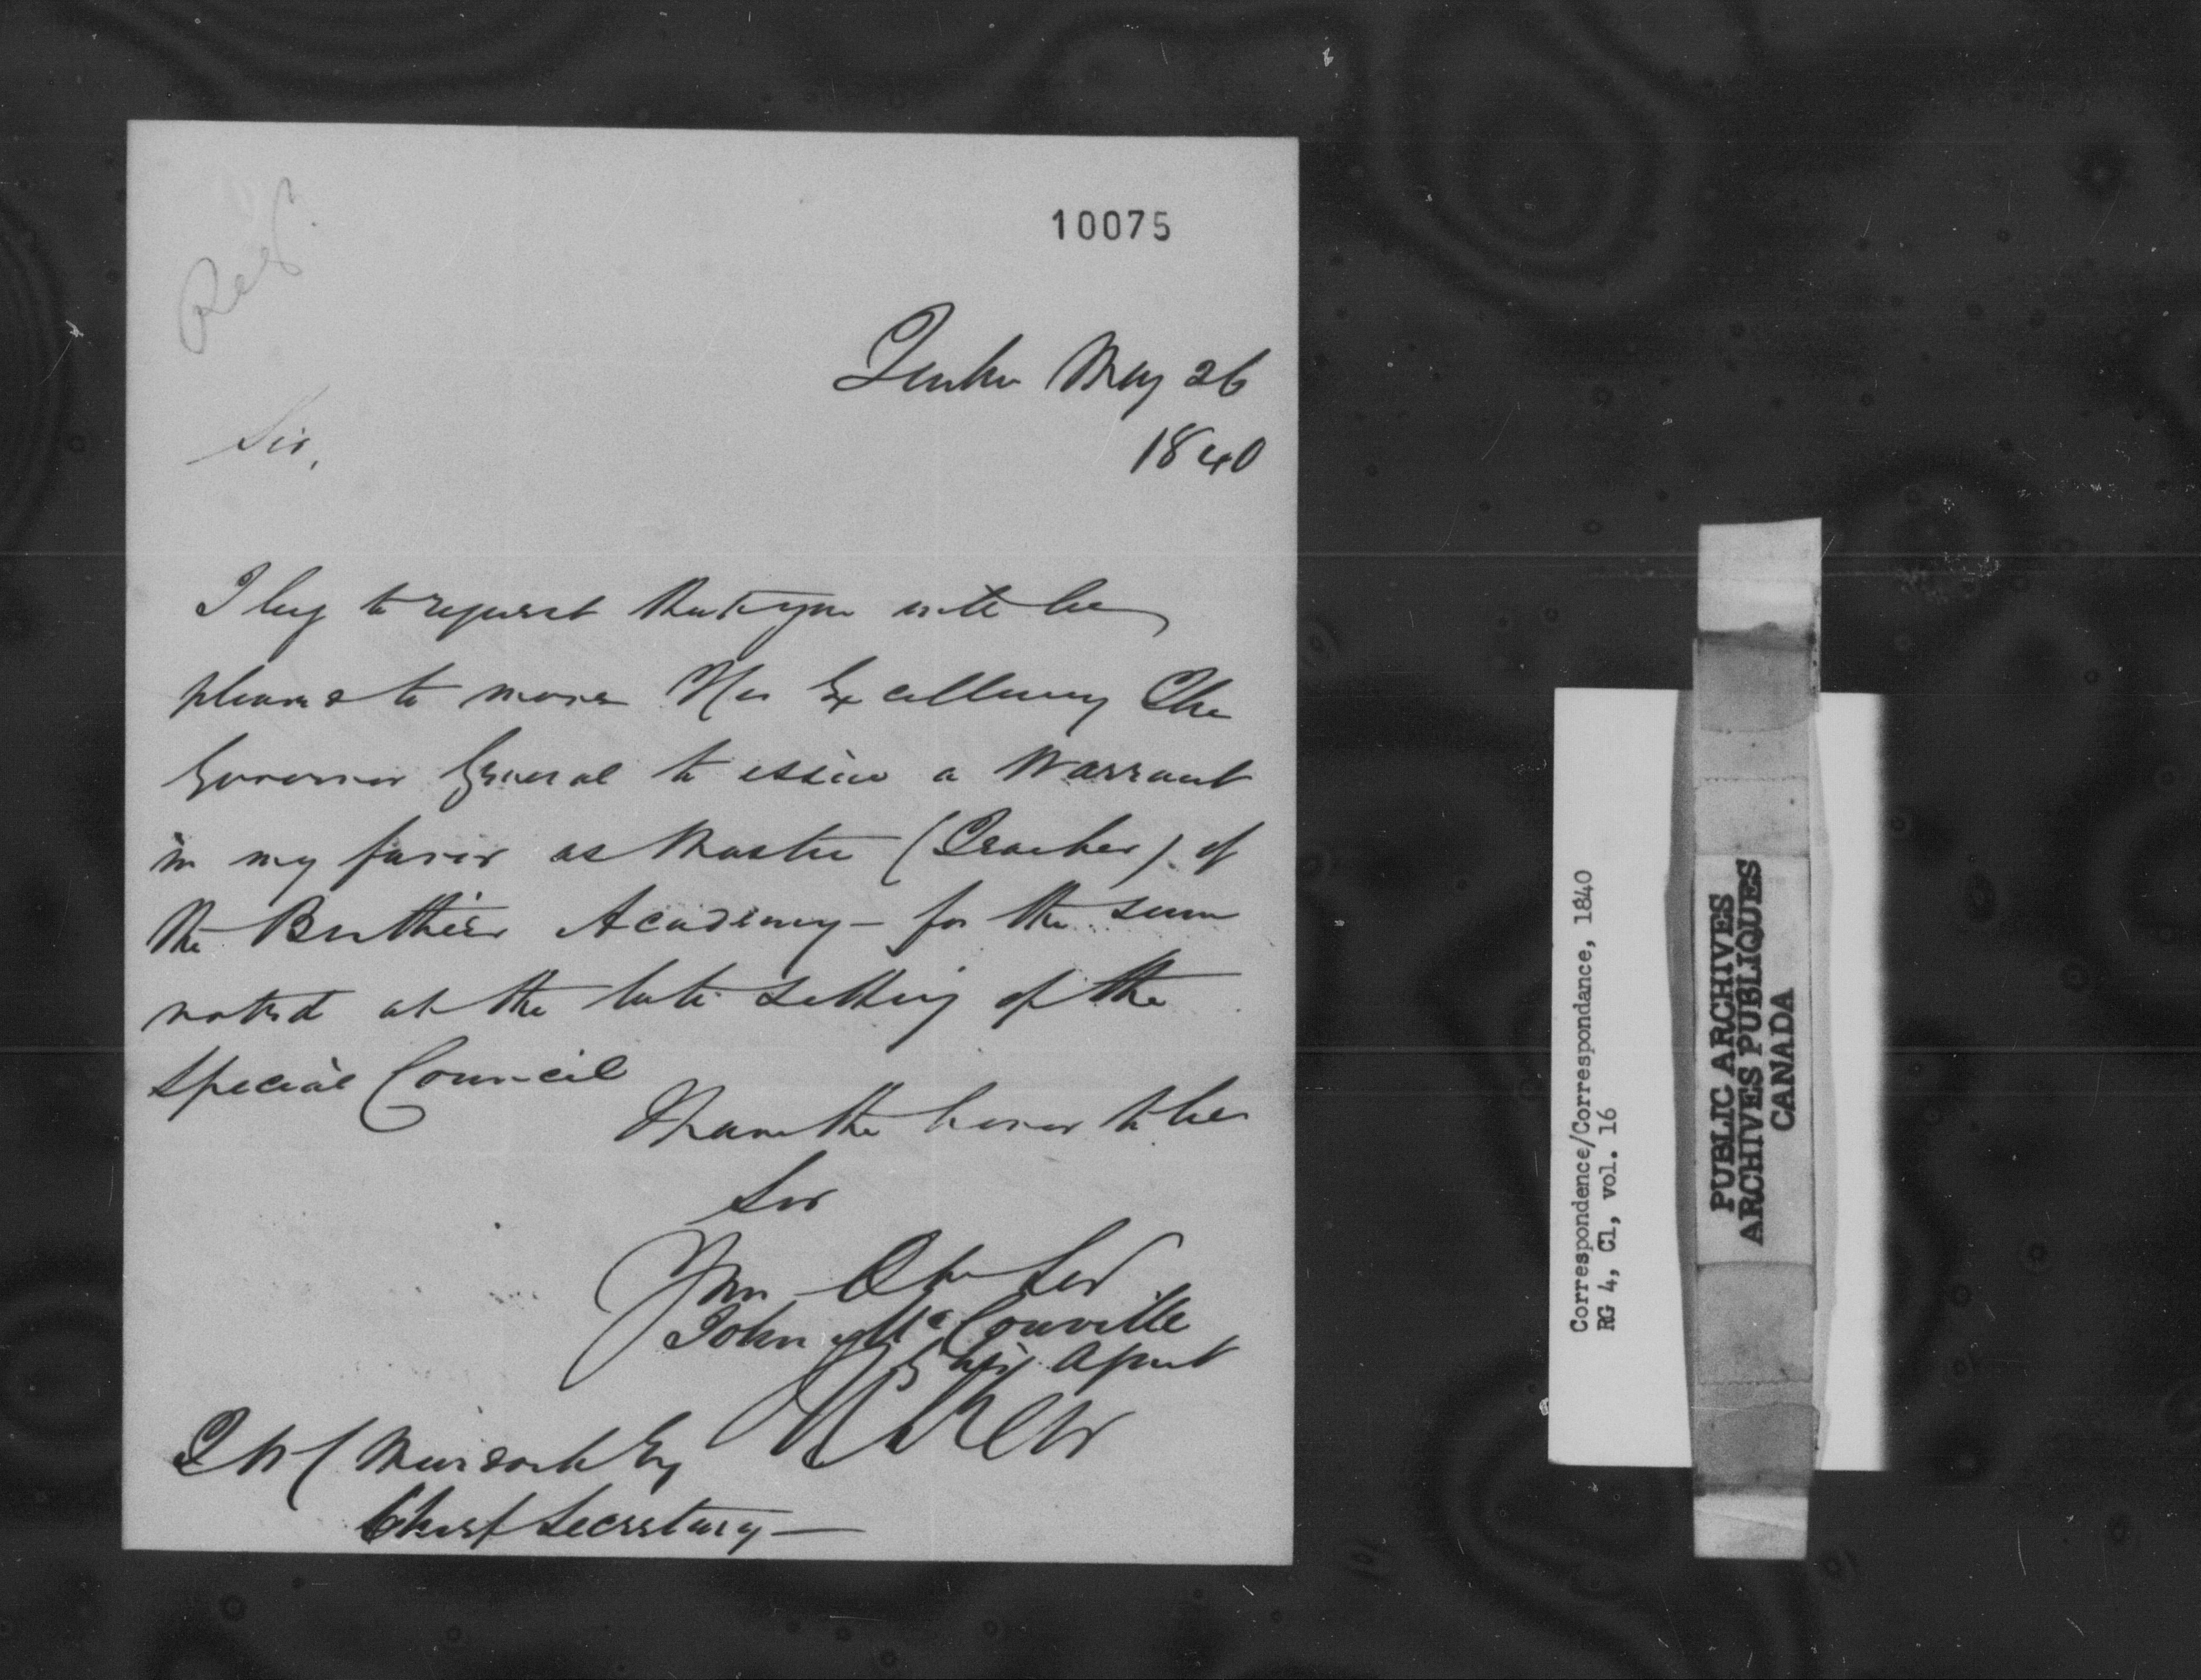 10075
Quebec May 26
1840
Sir,
I beg to request that you will be
pleased to move His Excellency The
Governor General to issue a Warrant
in my favor as Master (Teacher) of
the Berthier Academy - for the sum
voted at the late sitting of the
Special Council
I have the honor to be
Sir
Your Obt Ser
John McConville
by his Agent
T W C Murdoch Esq
Chief Secretary -
Correspondence/Correspondance, 1840
RG 4, C1, vol. 16
PUBLIC ARCHIVES
ARCHIVES PUBLIQUES
CANADA